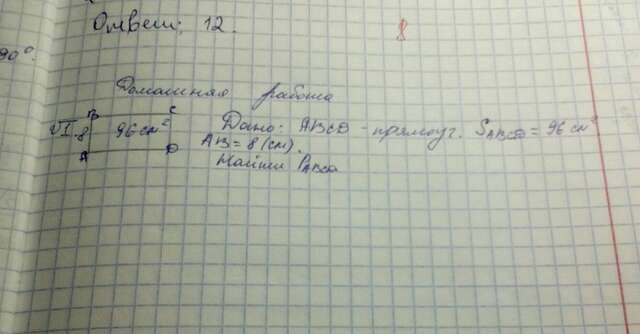 Ответ: 12.
8
90°.
Домашняя работа
B C
VI. 8 96 см² Дано: ABCD - прямоуг. SABCD = 96 см²
A D AB = 8 (см).
Найти PABCD